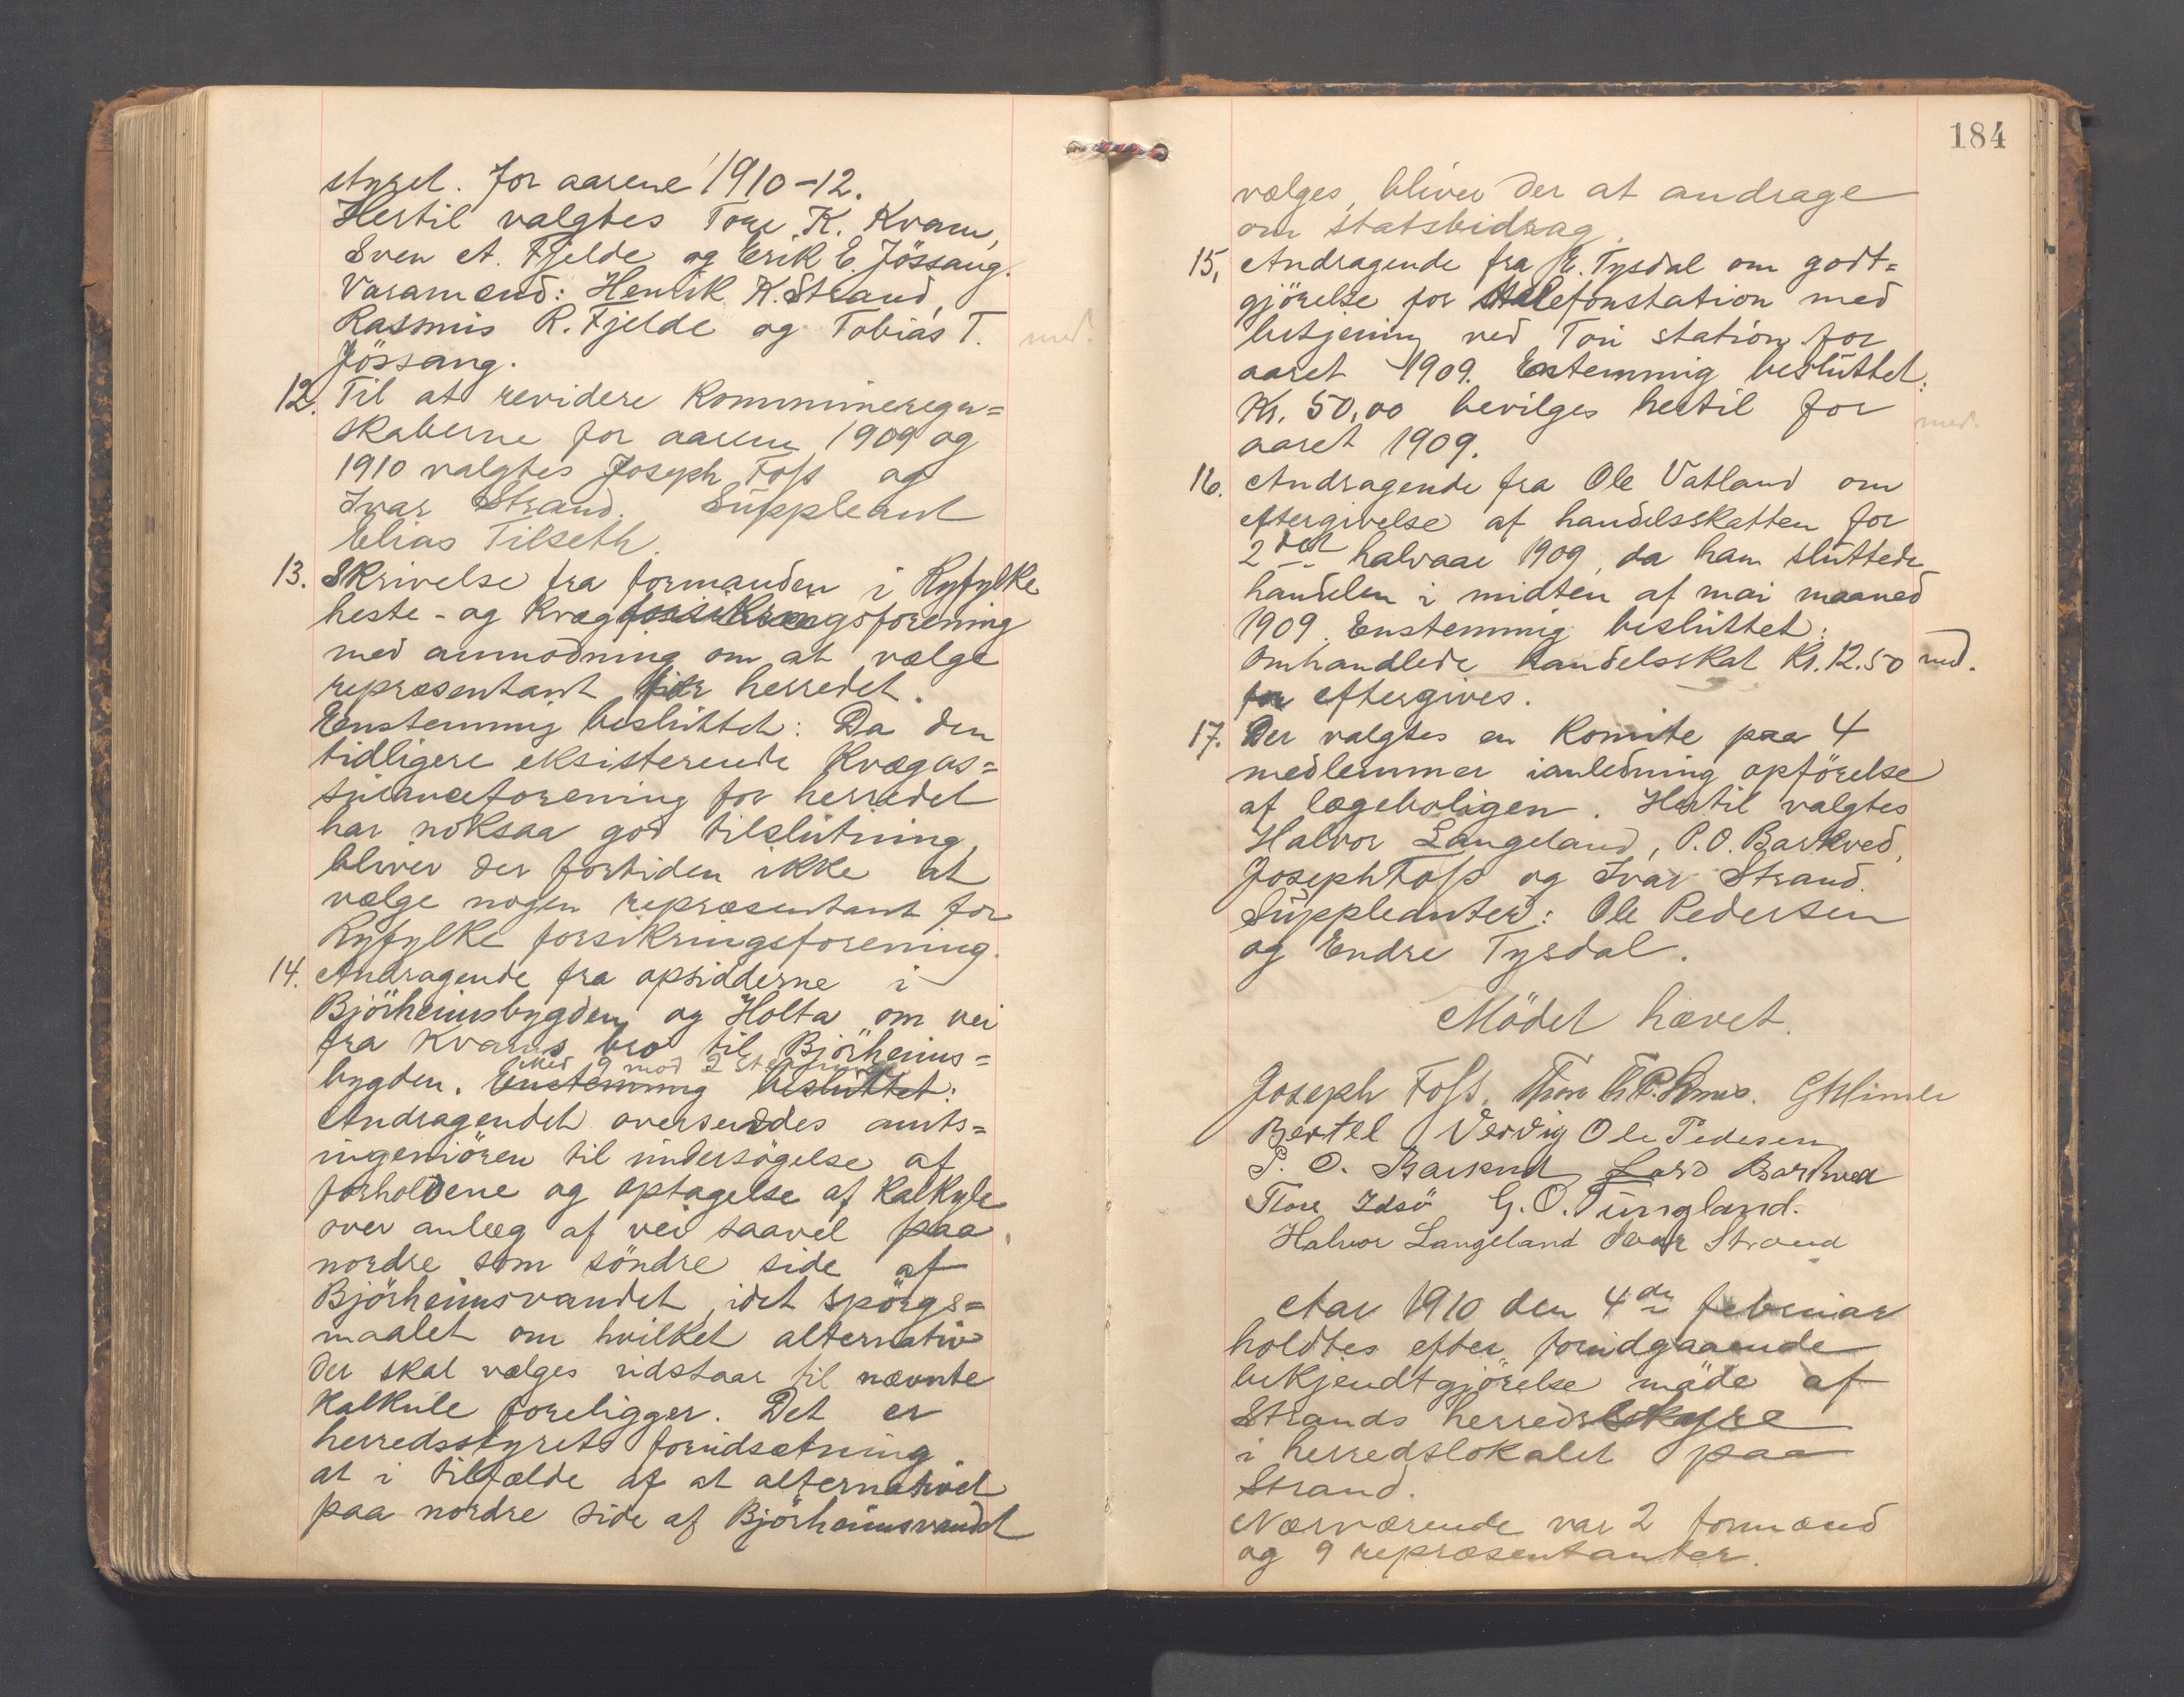 styret. for aarene 1910–12.
Hertil valgtes Tore K. Kvam,
Sven A. Fjelde og Erik E. Jössang.
Varamænd: Henrik K. Strand,
Rasmus R. Fjelde og Tobias T.
Jössang.
med.
12. Til at revidere kommuneregn=
skaberne for aarene 1909 og
1910 valgtes Joseph Foss og
Ivar Strand. Suppleant
Elias Tilseth.
13. Skrivelse fra formanden i Ryfylke
heste- og kvægforsikringsforening
med anmodning om at vælge
repræsentant for herredet.
Enstemmig besluttet: Da den
tidligere eksisterende kvægas=
suranceforening for herredet
har noksaa god tilslutning,
bliver der fortiden ikke at
vælge nogen repræsentant for
Ryfylke forsikringsforening.
14. Andragende fra opsidderne i
Björheimsbygden og Holta om vei
fra Kvams bro til Björheims=
med 9 mod 2 stemmer
bygden. Enstemmig besluttet:
Andragendet oversendes amts=
ingeniören til undersögelse af
forholdene og optagelse af kalkyle
over anlæg af vei saavel paa
nordre som söndre side af
Björheimsvandet, idet spörgs=
maalet om hvilket alternativ
der skal vælges udstaar til nævnte
kalkule foreligger. Det er
herredsstyrets forudsætning
at i tilfælde af at alternativet
paa nordre side af Björheimsvandet
184
vælges, bliver der at andrage
om statsbidrag.
15, Andragende fra E. Tysdal om godt=
gjörelse for telefonstation med
betjening ved Tou station for
aaret 1909. Enstemmig besluttet:
Kr. 50,00 bevilges hertil for
aaret 1909.
med.
16. Andragende fra Ole Vatland om
eftergivelse af handelsskatten for
2det halvaar 1909, da han sluttede
handelen i midten af mai maaned
1909. Enstemmig besluttet:
Omhandlede handelsskat Kr. 12.50 med.
for eftergives.
17. Der valgtes en komite paa 4
medlemmer ianledning opförelse
af lægeboligen. Hertil valgtes
Halvor Langeland, P. O. Barkved,
Joseph Foss og Ivar Strand.
Suppleanter: Ole Pedersen
og Endre Tysdal.
Mödet hævet.
Joseph Foss.
Bertel Vervig Ole Pedersen
P. O. Barkved Lars Barkved
Tore Idsö G. O. Tungland.
Halvor Langeland Ivar Strand
Aar 1910 den 4de februar
holdtes efter forudgaaende
bekjendtgjörelse möde af
Strands herredsstyre
i herredslokalet paa
Strand.
Nærværende var 2 formænd
og 9 repræsentanter.